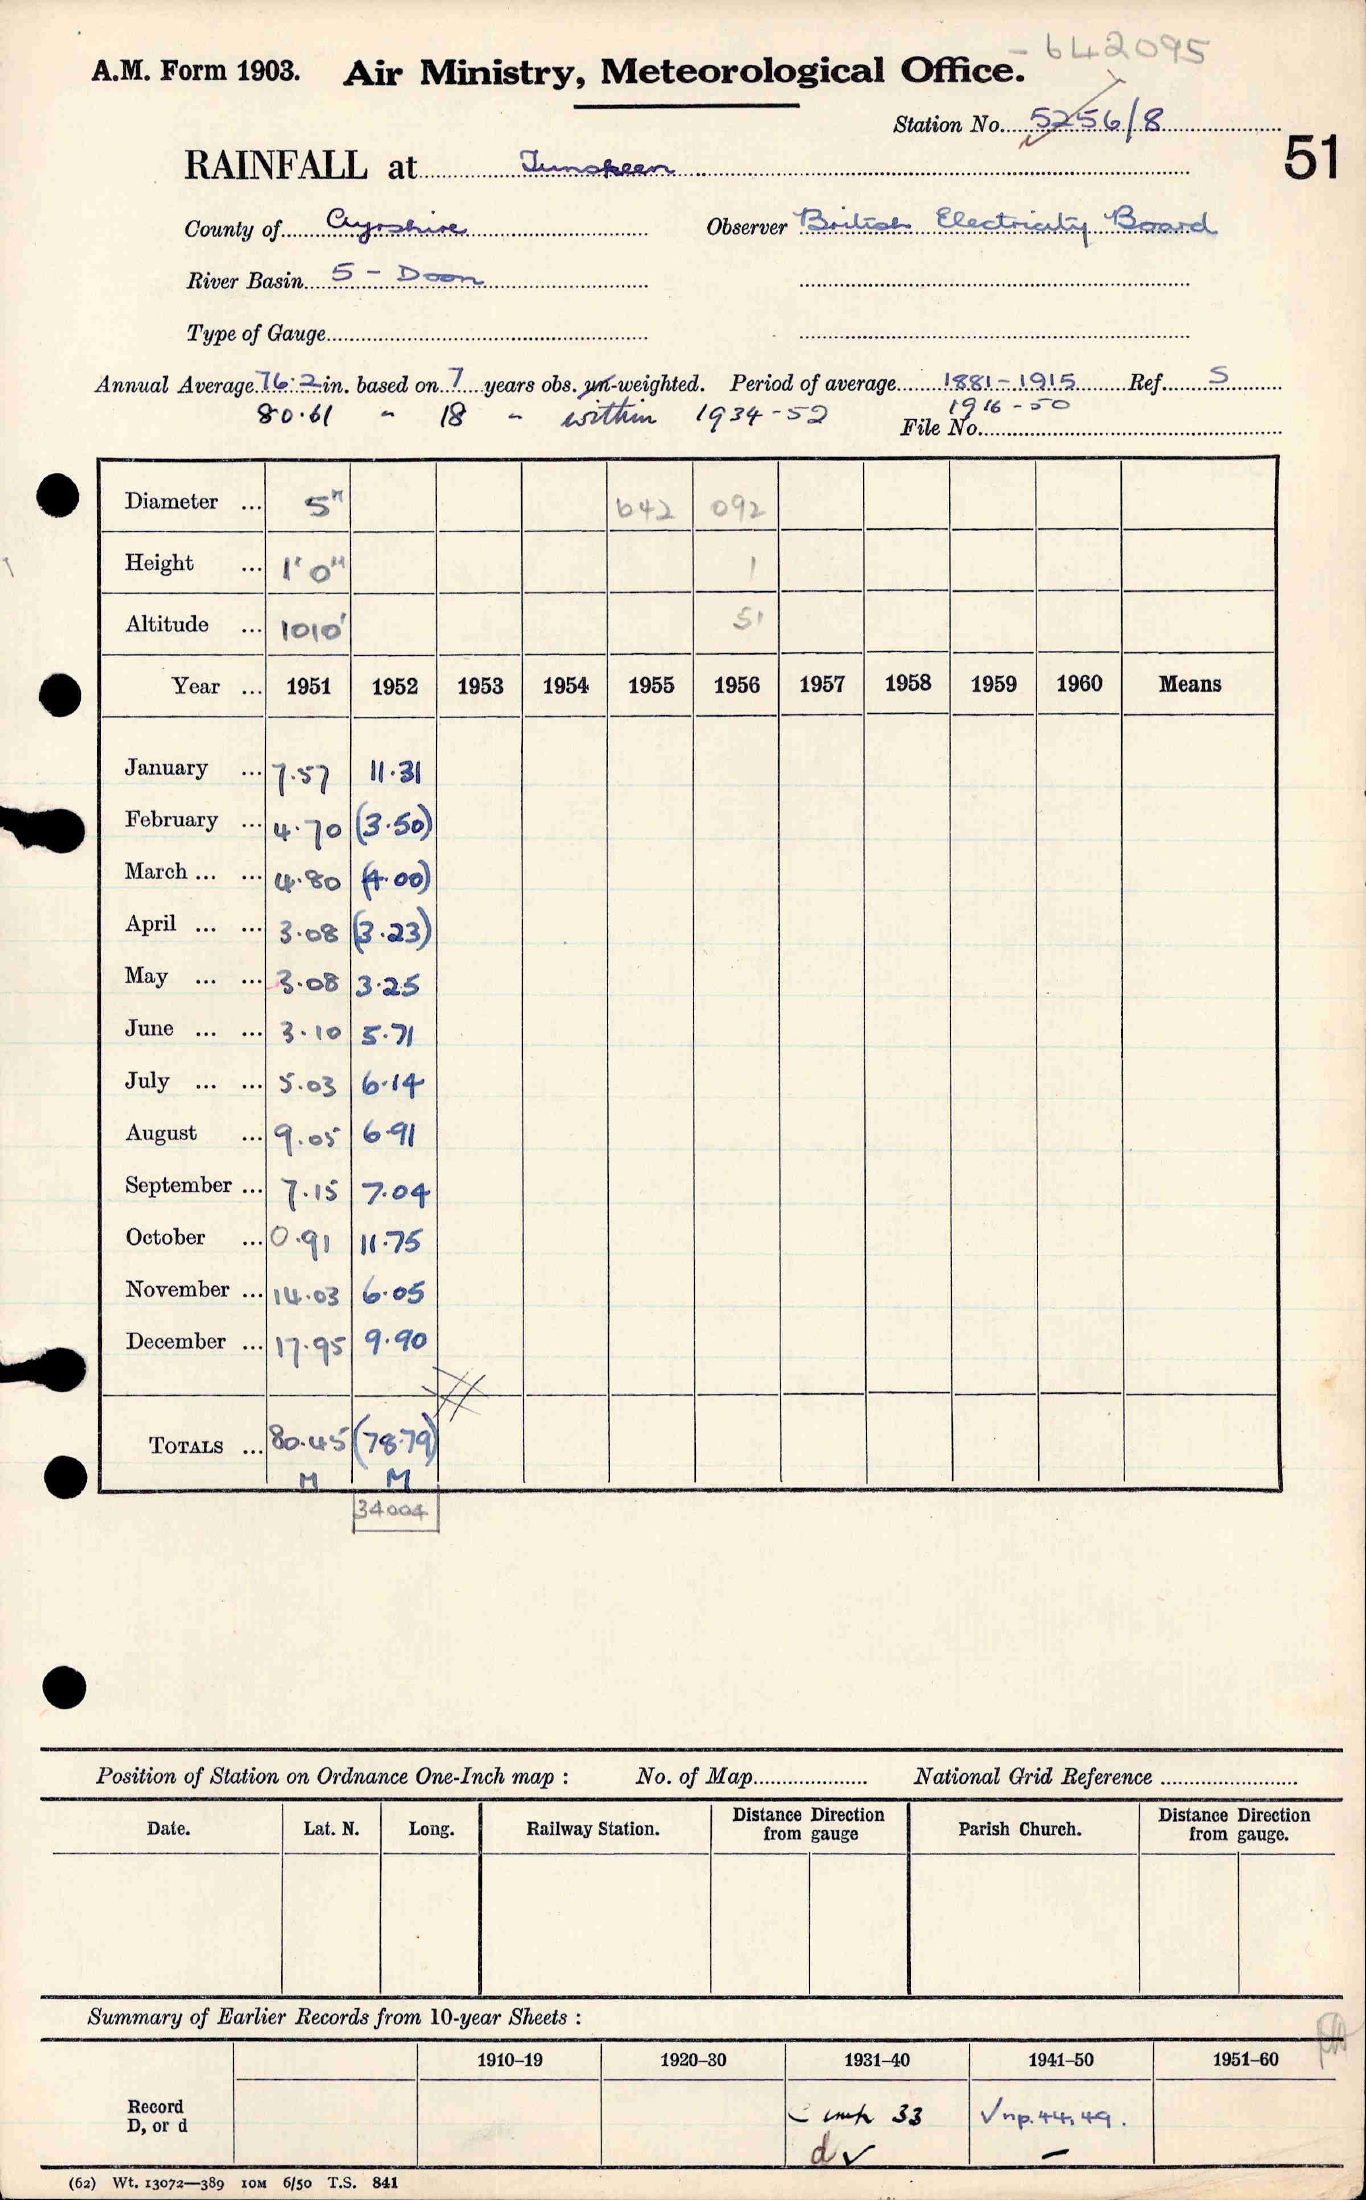 - 642095
A.M. Form 1903. Air Ministry, Meteorological Office.
Station No. 5256/8
51
RAINFALL at Tunskeen
County of Ayrshire Observer British Electricity Board
River Basin 5 - Doon
Type of Gauge
Annual Average 76.2 in. based on 7 years obs. un-weighted. Period of average 1881-1915 Ref. S
80.61 " 18 " within 1934-52 1916-50
File No.
Diameter ... 5" 642 092
Height ... 1' 0" 1
Altitude ... 1010' 51
Year ... 1951 1952 1953 1954 1955 1956 1957 1958 1959 1960 Means
January ... 7.57 11.31
February ... 4.70 (3.50)
March ... ... 4.80 (4.00)
April ... ... 3.08 (3.23)
May ... ... 3.08 3.25
June ... ... 3.10 5.71
July ... ... 5.03 6.14
August ... 9.05 6.91
September ... 7.15 7.04
October ... 0.91 11.75
November ... 14.03 6.05
December ... 17.95 9.90
TOTALS ... 80.45 (78.79)
M M
34004
Position of Station on Ordnance One-Inch map : No. of Map National Grid Reference
Date. Lat. N. Long. Railway Station. Distance from gauge Direction Parish Church. Distance from gauge. Direction
Summary of Earlier Records from 10-year Sheets :
1910–19 1920–30 1931–40 1941–50 1951–60
Record
D, or d
33 √ np. 44, 49.
d ✓ –
(62) Wt. 13072—389 10M 6/50 T.S. 841